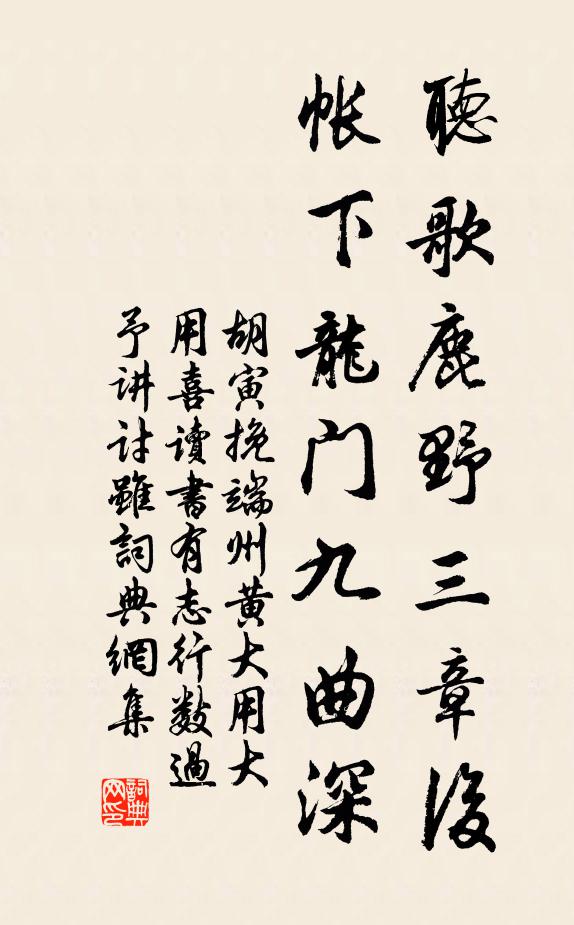 聽歌鹿野三章後
帳下龍门九曲深
胡寅挽端州黄大用大
用喜讀書有志行数過
予讲討雖詞典網集
詞典网印